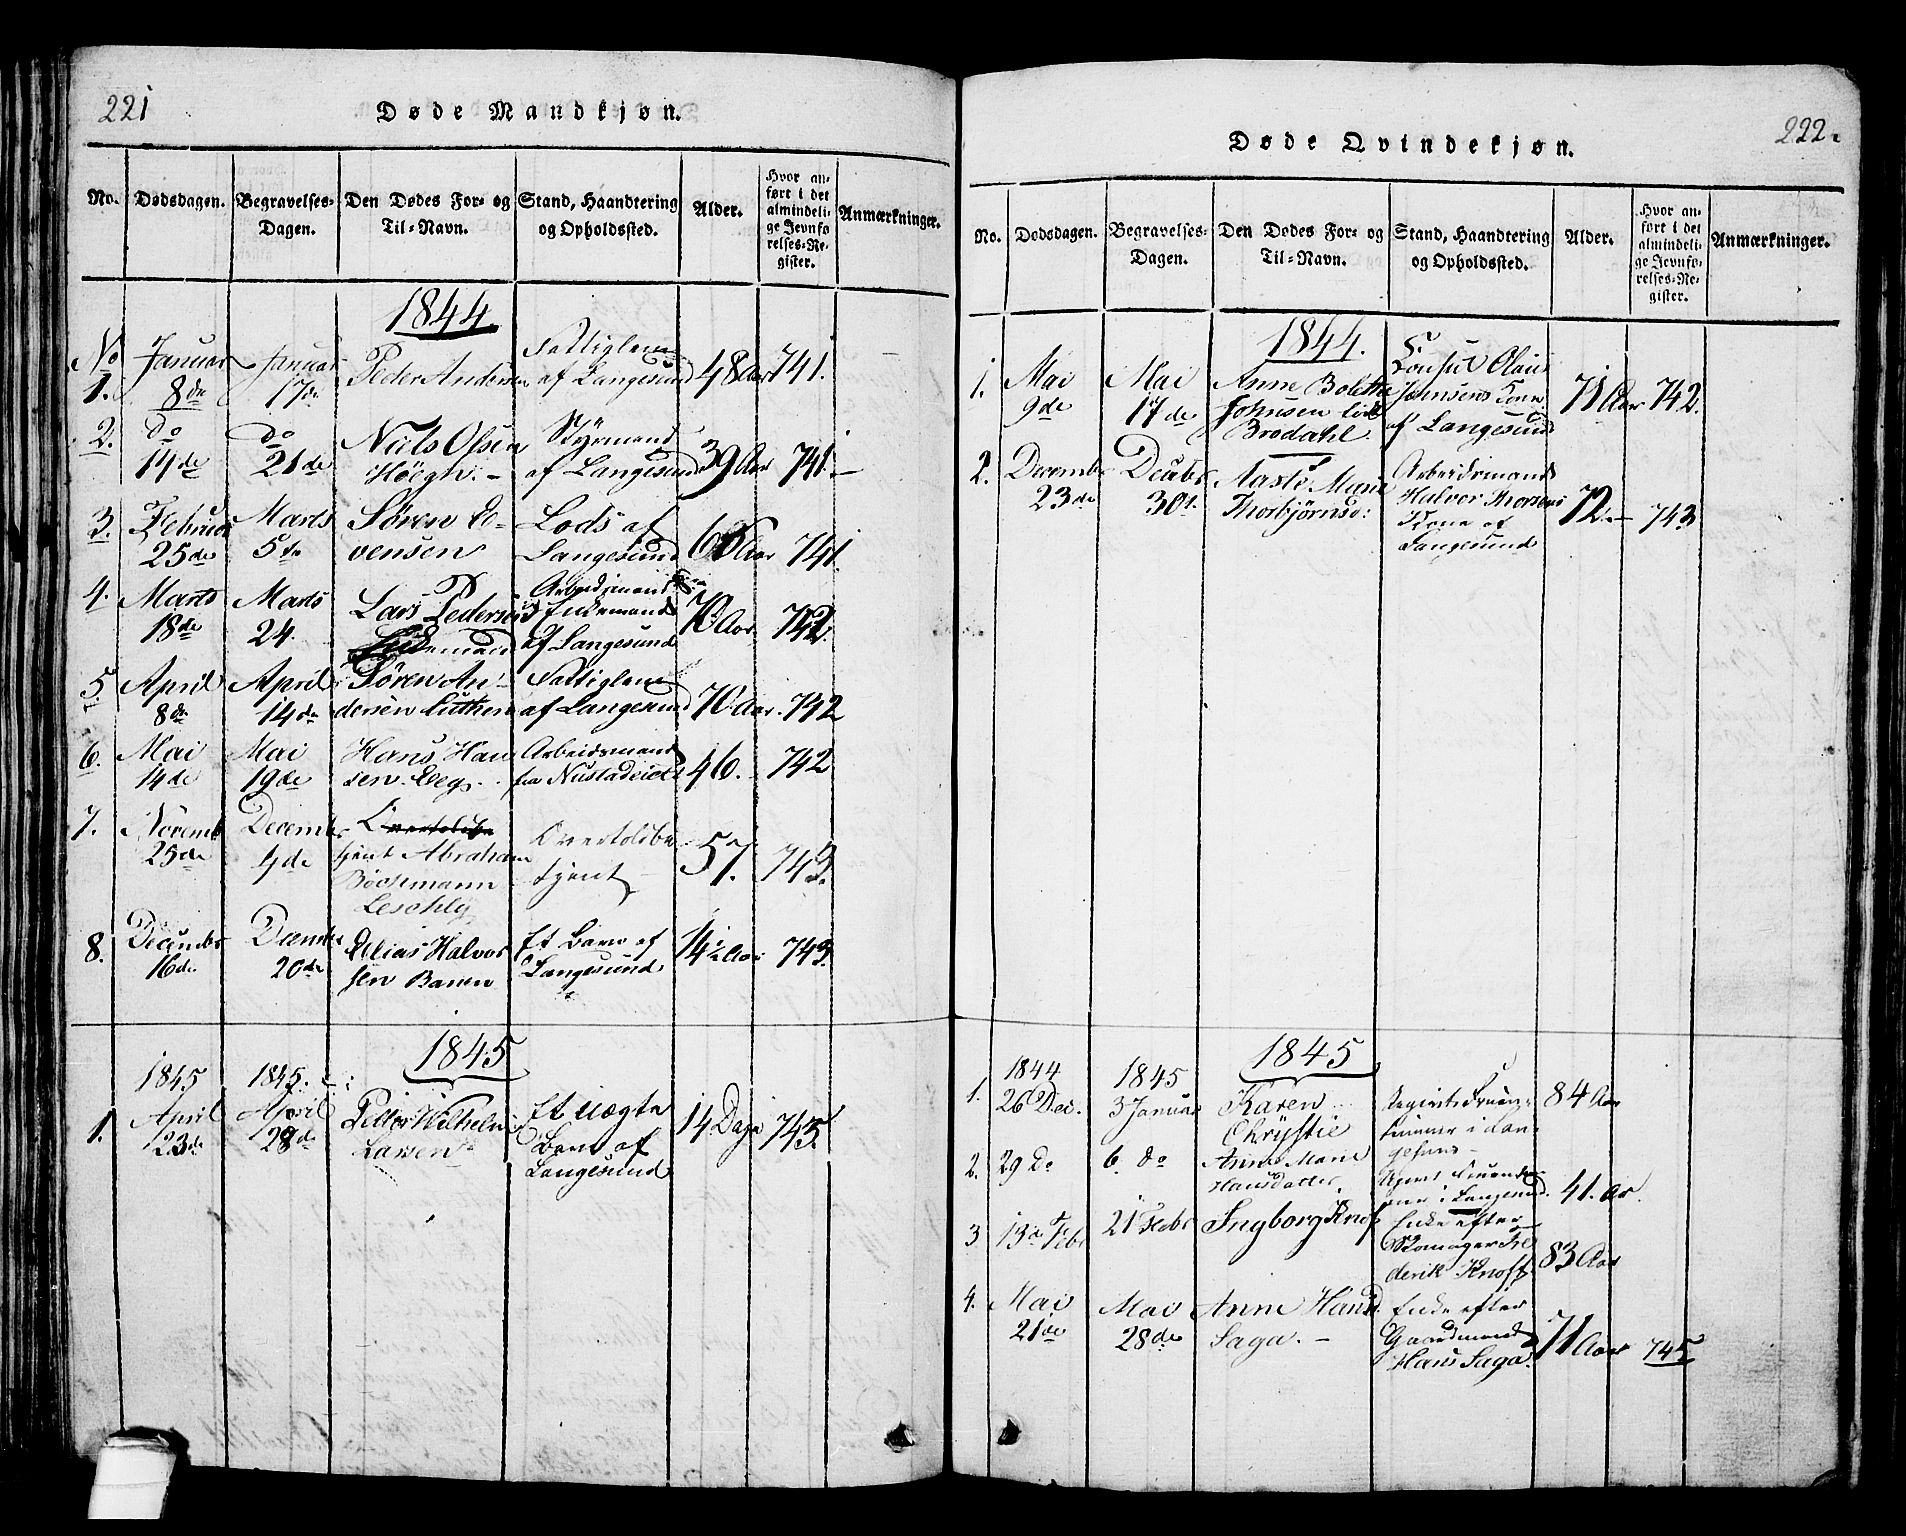 221
Døde Mandkjøn.
No. Dødsdagen. Begravelses-Dagen. Den Dødes For- og Til-Navn. Stand, Haandtering og Opholdssted. Alder. Hvor anført i det almindelige Jevnførelses-Register. Anmærkninger.
1844
No 1. Januar 8de Januar 17de Peder Andersen Fattiglem af Langesund 48 Aar 741.
2. do 14de do 21de Niels Olsen Höegh. Styrmand af Langesund 39 Aar 741.
3. Februar 25de Marts 5te Sören Evensen Lods af Langesund Aar 741
4. Marts 18de Marts 24 Lars Pedersen Arbeidsmand Enkemand af Langesund 70 Aar. 742.
5. April 8de April 14de Sören Andersen Fattiglem af Langesund 70 Aar. 742
6. Mai 14de Mai 19de Hans Hansen Eeg. Arbeidsmand fra 46. 742
7. Novemb 25de December 4de Overtoldbetjent Abraham Böckmann Leschly Overtoldbetjent 57. 743.
8. Decembr 16de December 20de Elias Halvorsen Barn Et Barn af Langesund 14 1/2 Aar 743.
1845
1. 1845 April 23de 1845. April 28de Petter Wilhelm Larsen Et uægte Barn af Langesund 14 Dage 745
222.
Døde Qvindekjøn.
No. Dødsdagen. Begravelses-Dagen. Den Dødes For- og Til-Navn. Stand, Haandtering og Opholdssted. Alder. Hvor anført i det almindelige Jevnførelses-Register. Anmærkninger.
1844.
1. Mai 9de Mai 17de Anne Bolette Johnsen född Brodahl. Consul Claus Johnsens Kone af Langesund 71 Aar 742.
2. December 23de Decbr 30t. Aaste Marie Thorbjörnsd: Arbeidsmand Halvor Thorsens Kone af Langesund 72. 743
1845
1. 1844 26 Dec. 1845 3 Januar Karen Chrystie Fruentimmer i Langesund 84 Aar
2. 29 Do 6. do Anne Marie Hansdatter i Langesund. 41. Aar.
3 13de Feb. 21 Febr Ingborg Knoff Enke efter Skomager Frederik Knoff. 83 Aar
4. Mai 21de Mai 28de Anne Hansd. Saga. Enke efter Gaardmand Hans Saga. 71 Aar 745